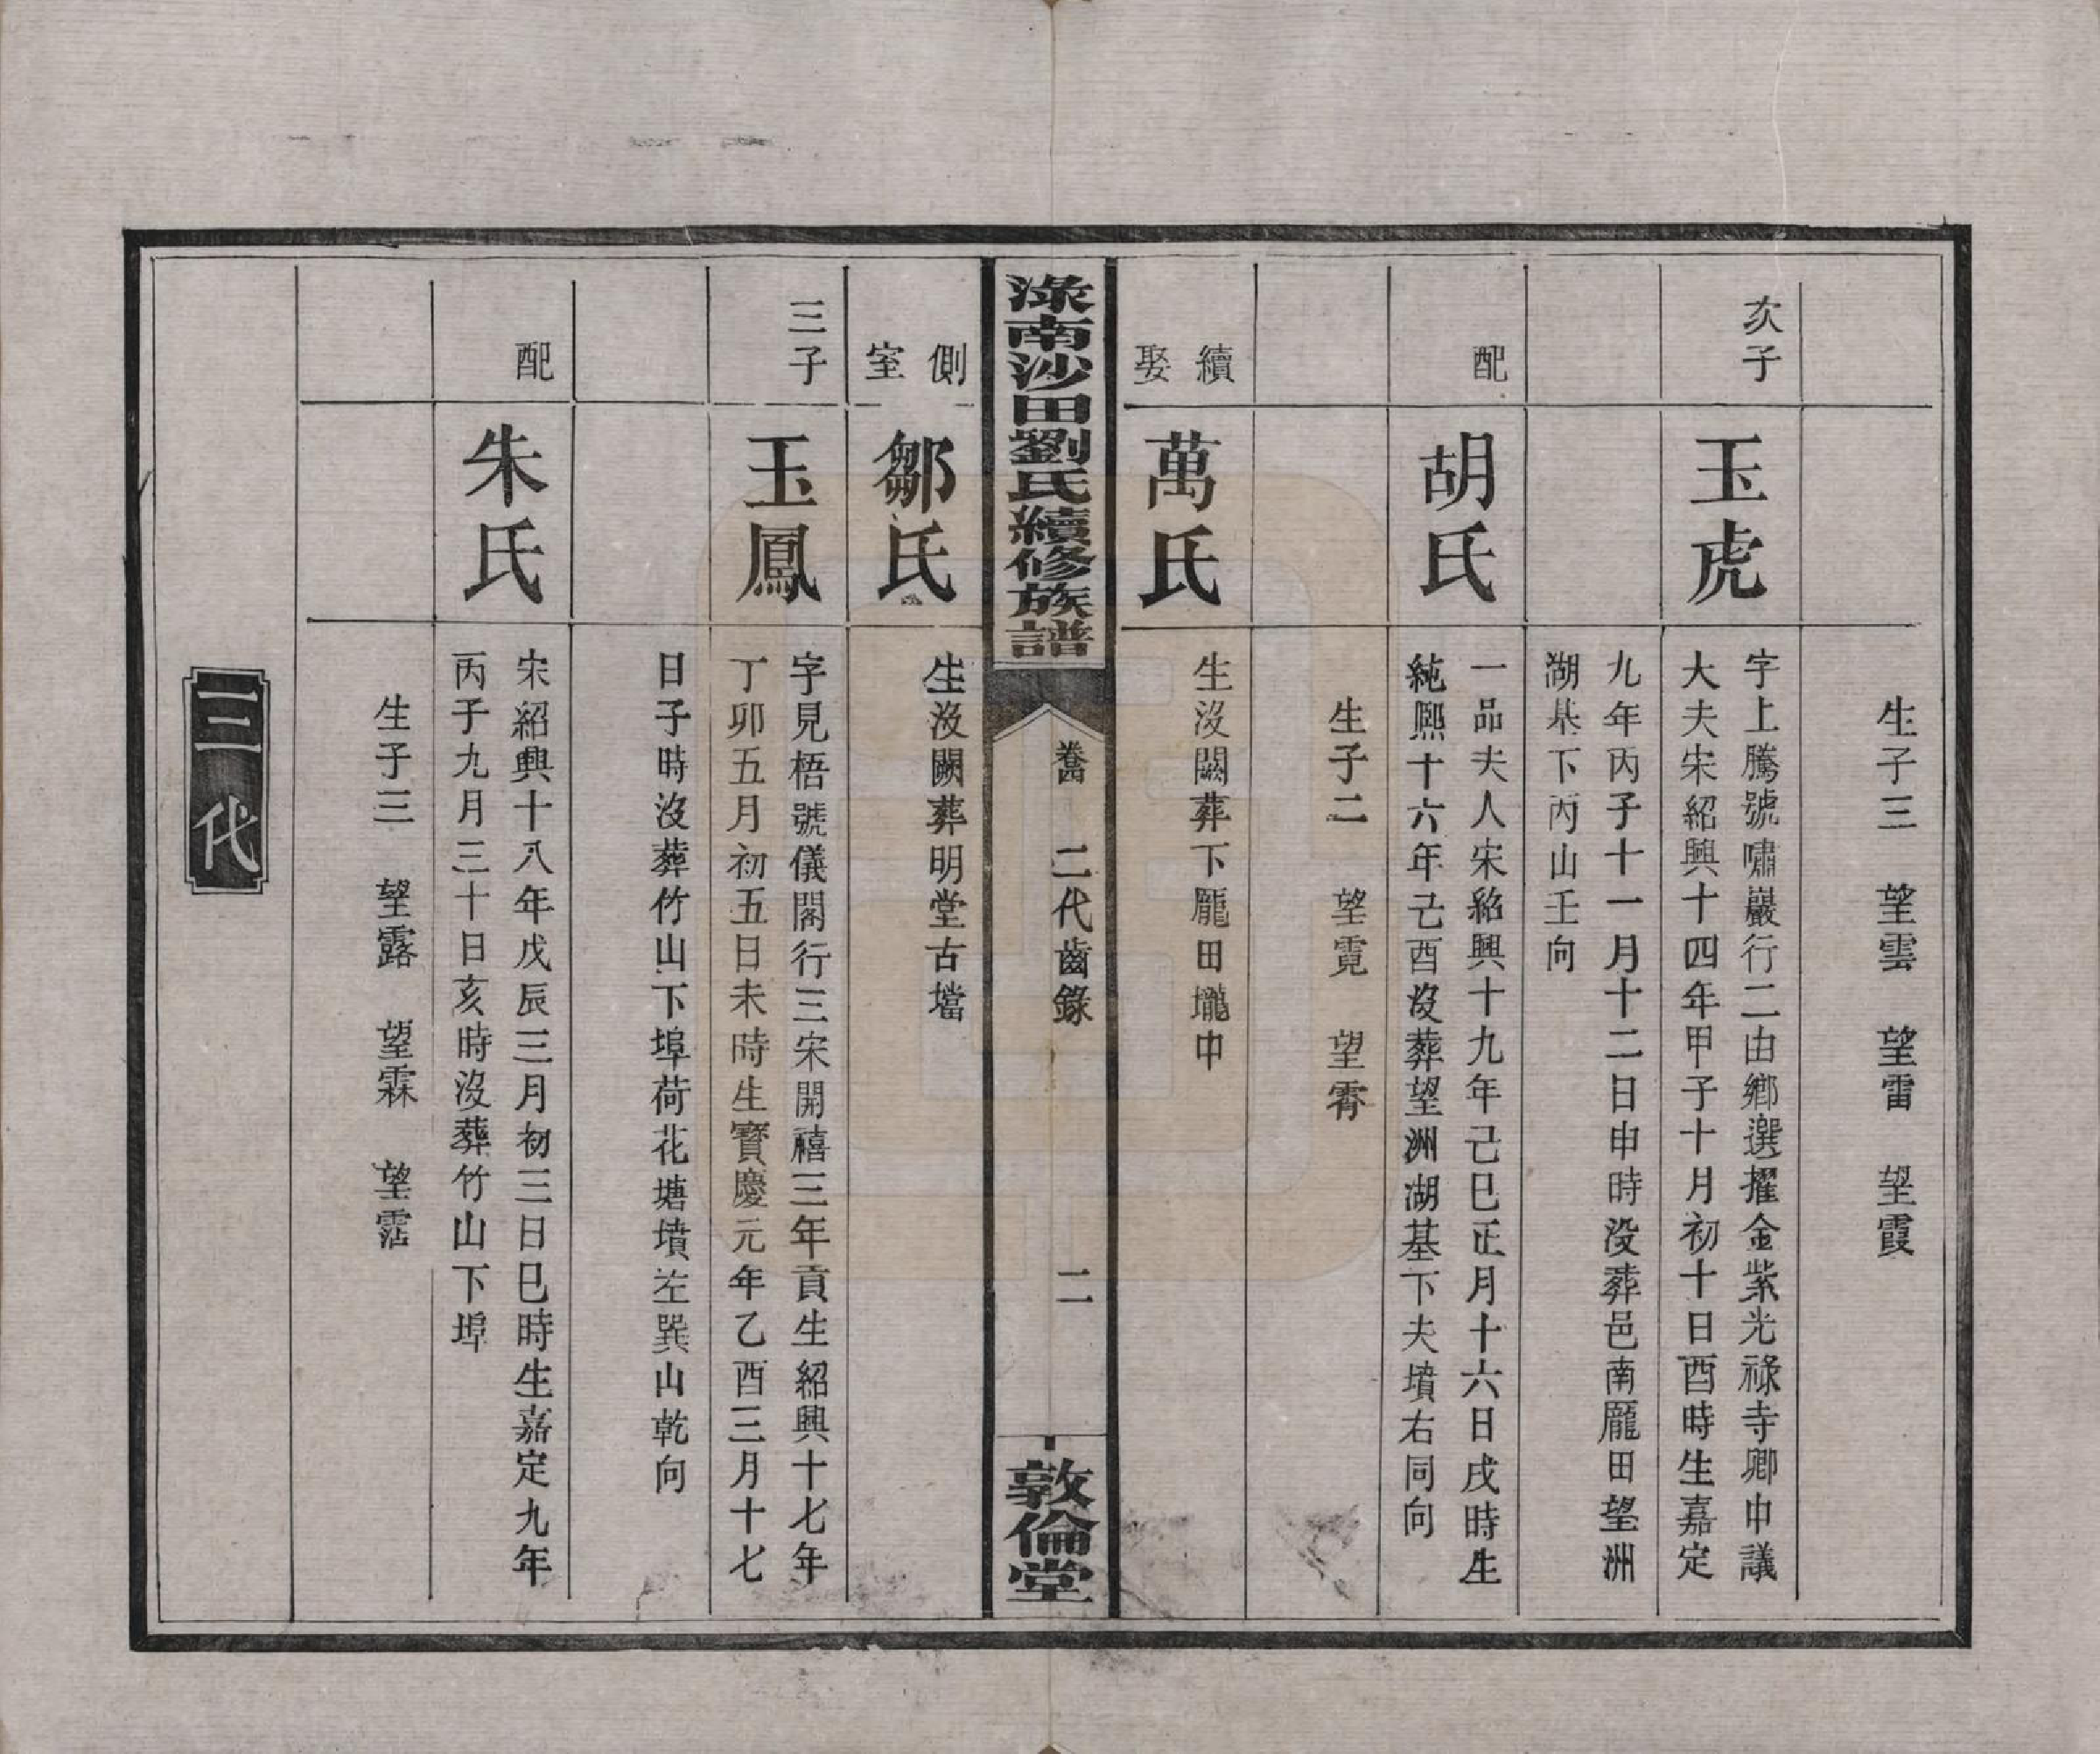 生子三　望雲　望雷　望霞
次子
玉虎
字上騰號嘯巖行二由鄉選擢金紫光祿寺卿中議
大夫宋紹興十四年甲子十月初十日酉時生嘉定
九年丙子十一月十二日申時没葬邑南龎田望洲
湖基下丙山壬向
配
胡氏
一品夫人宋紹興十九年己巳正月十六日戌時生
純熙十六年己酉没葬望洲湖基下夫墳右同向
生子二　望霓　望霄
續娶
萬氏
生没闕葬下龎田壠中
淥南沙田劉氏續修族譜
二代齒錄
二
敦倫堂
側室
鄒氏
生没闕葬明堂古壋
三子
玉鳳
字見梧號儀閣行三宋開禧三年貢生紹興十七年
丁卯五月初五日未時生寶慶元年乙酉三月十七
日子時没葬竹山下埠荷花塘墳左巽山乾向
配
朱氏
宋紹興十八年戊辰三月初三日巳時生嘉定九年
丙子九月三十日亥時没葬竹山下埠
生子三　望露　望霖　望霑
三代